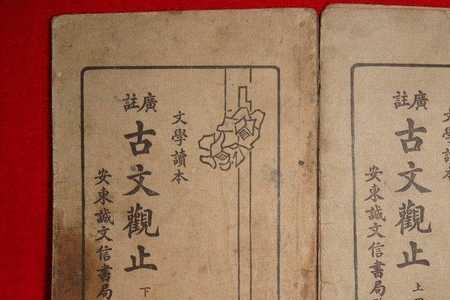 文學讀本
廣註
古文觀止
上
安東誠文信書局
文學讀本
廣註
古文觀止
下
安東誠文信書局